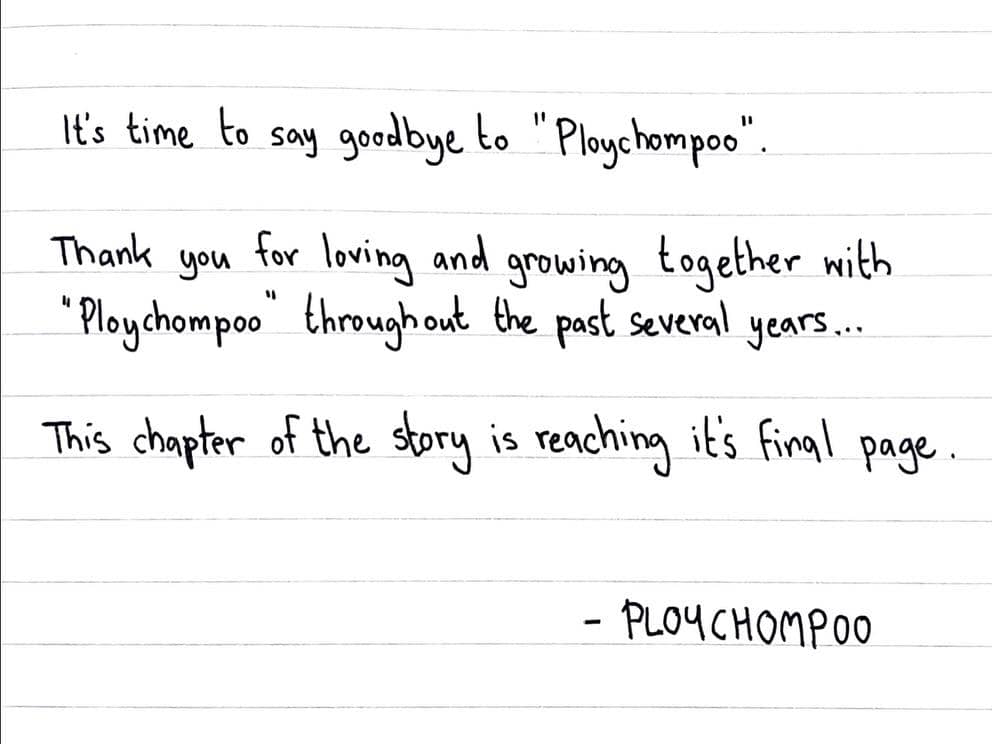 It's time to say goodbye to "Ploychompoo".
Thank you for loving and growing together with
"Ploychompoo" throughout the past several years...
This chapter of the story is reaching it's final page.
- PLOYCHOMPOO